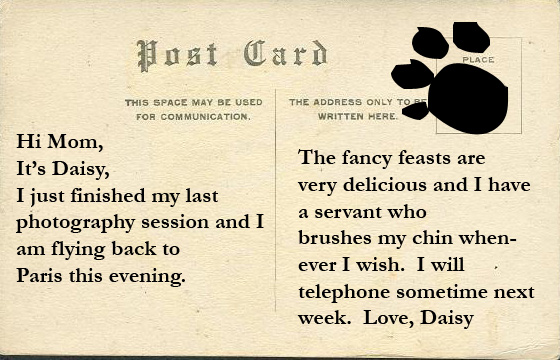 Post Card
PLACE
THIS SPACE MAY BE USED
FOR COMMUNICATION.
THE ADDRESS ONLY TO BE
WRITTEN HERE.
Hi Mom,
It's Daisy,
I just finished my last
photography session and I
am flying back to
Paris this evening.
The fancy feasts are
very delicious and I have
a servant who
brushes my chin when-
ever I wish. I will
telephone sometime next
week. Love, Daisy